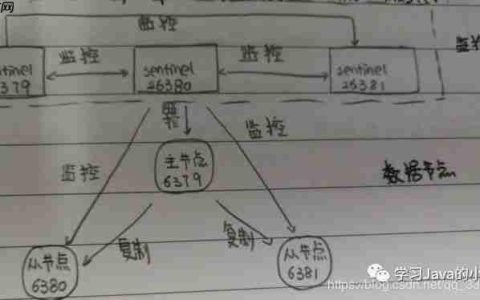 网
监控
监控
监控
监
sentinel
379
sentinel
26380
sentinel
26381
监控
监控
监控
主节点
6379
数据节点
复制
复制
从节点
6380
从节点
6381
学习Java的小
https://blog.csdn.net/qq_33